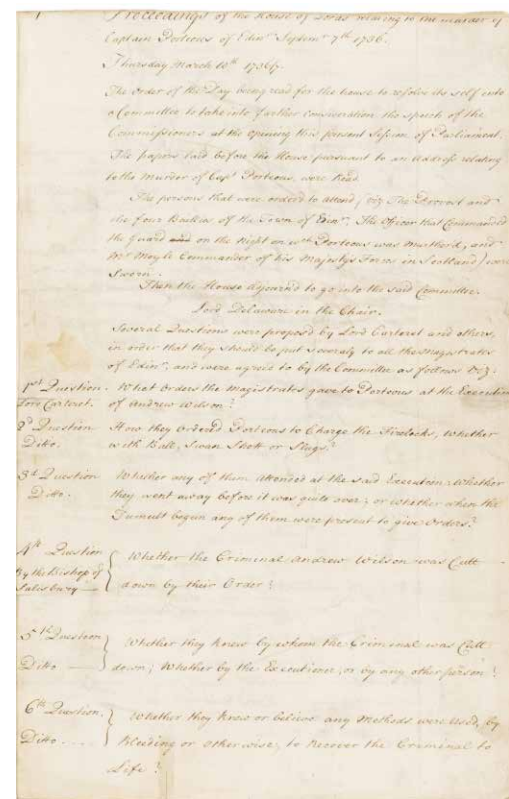 Proceedings of the House of Lords relating to the murder of
Captain Porteous of Edinr. Septemr 7th 1736.
Thursday March 10th 1736/7.
The order of the Day being read for the house to resolve its self into
a Committee to take into farther consideration the speech of the
Commissioners at the opening this present Session of Parliament.
The papers laid before the House pursuant to an Address relating
to the Murder of Capt Porteous, were Read.
The persons that were orderd to attend, viz The Provost and
the four Baillies of the Town of Edinr. The Officer that Commanded
the Guard and on the Night on wch Porteous was Murtherd, and
Mr Moyle Commander of his Majestys Forces in Scotland) were
Sworn.
Then the House Adjourn'd to go into the said Committee.
Lord Delaware in the Chair.
Several Questions were propos'd by Lord Carteret and others,
in order that they should be put severaly to all the Magistrates
of Edinr. and were agree'd to by the Committee as follows viz.
1st Question. What Orders the Magistrates gave to Porteous at the Execution
Lord Carteret. of Andrew Wilson?
2d Question How they Ordered Porteous to Charge the Firelocks, whether
Ditto. with Ball, Swan Shott or Slugs?
3d Question Whether any of them attended at the said Execution; whether
Ditto. they went away before it was quite over; or whether when the
Tumult begun any of them were present to give Orders?
4th Question Whether the Criminal Andrew Wilson was Cutt
By the Bishop of
Salisbury down by their Order?
5th Question Whether they knew by whom the Criminal was Cutt
Ditto down; Whether by the Executioner, or by any other person?
6th Question. Whether they knew or believe any Methods were Used, by
Ditto Bleeding or otherwise, to Recover the Criminal to
Life?